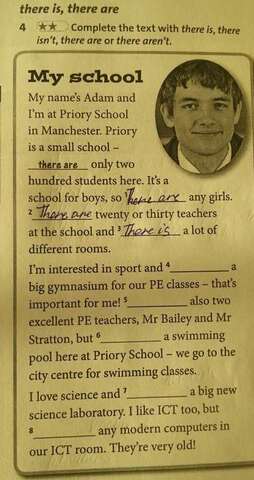 there is, there are
4 ★★ Complete the text with there is, there
isn't, there are or there aren't.
My school
My name's Adam and
I'm at Priory School
in Manchester. Priory
is a small school –
there are only two
hundred students here. It's a
school for boys, so ¹There are any girls.
² There are twenty or thirty teachers
at the school and ³There is a lot of
different rooms.
I'm interested in sport and ⁴__________ a
big gymnasium for our PE classes – that's
important for me! ⁵__________ also two
excellent PE teachers, Mr Bailey and Mr
Stratton, but ⁶__________ a swimming
pool here at Priory School – we go to the
city centre for swimming classes.
I love science and ⁷__________ a big new
science laboratory. I like ICT too, but
⁸__________ any modern computers in
our ICT room. They're very old!